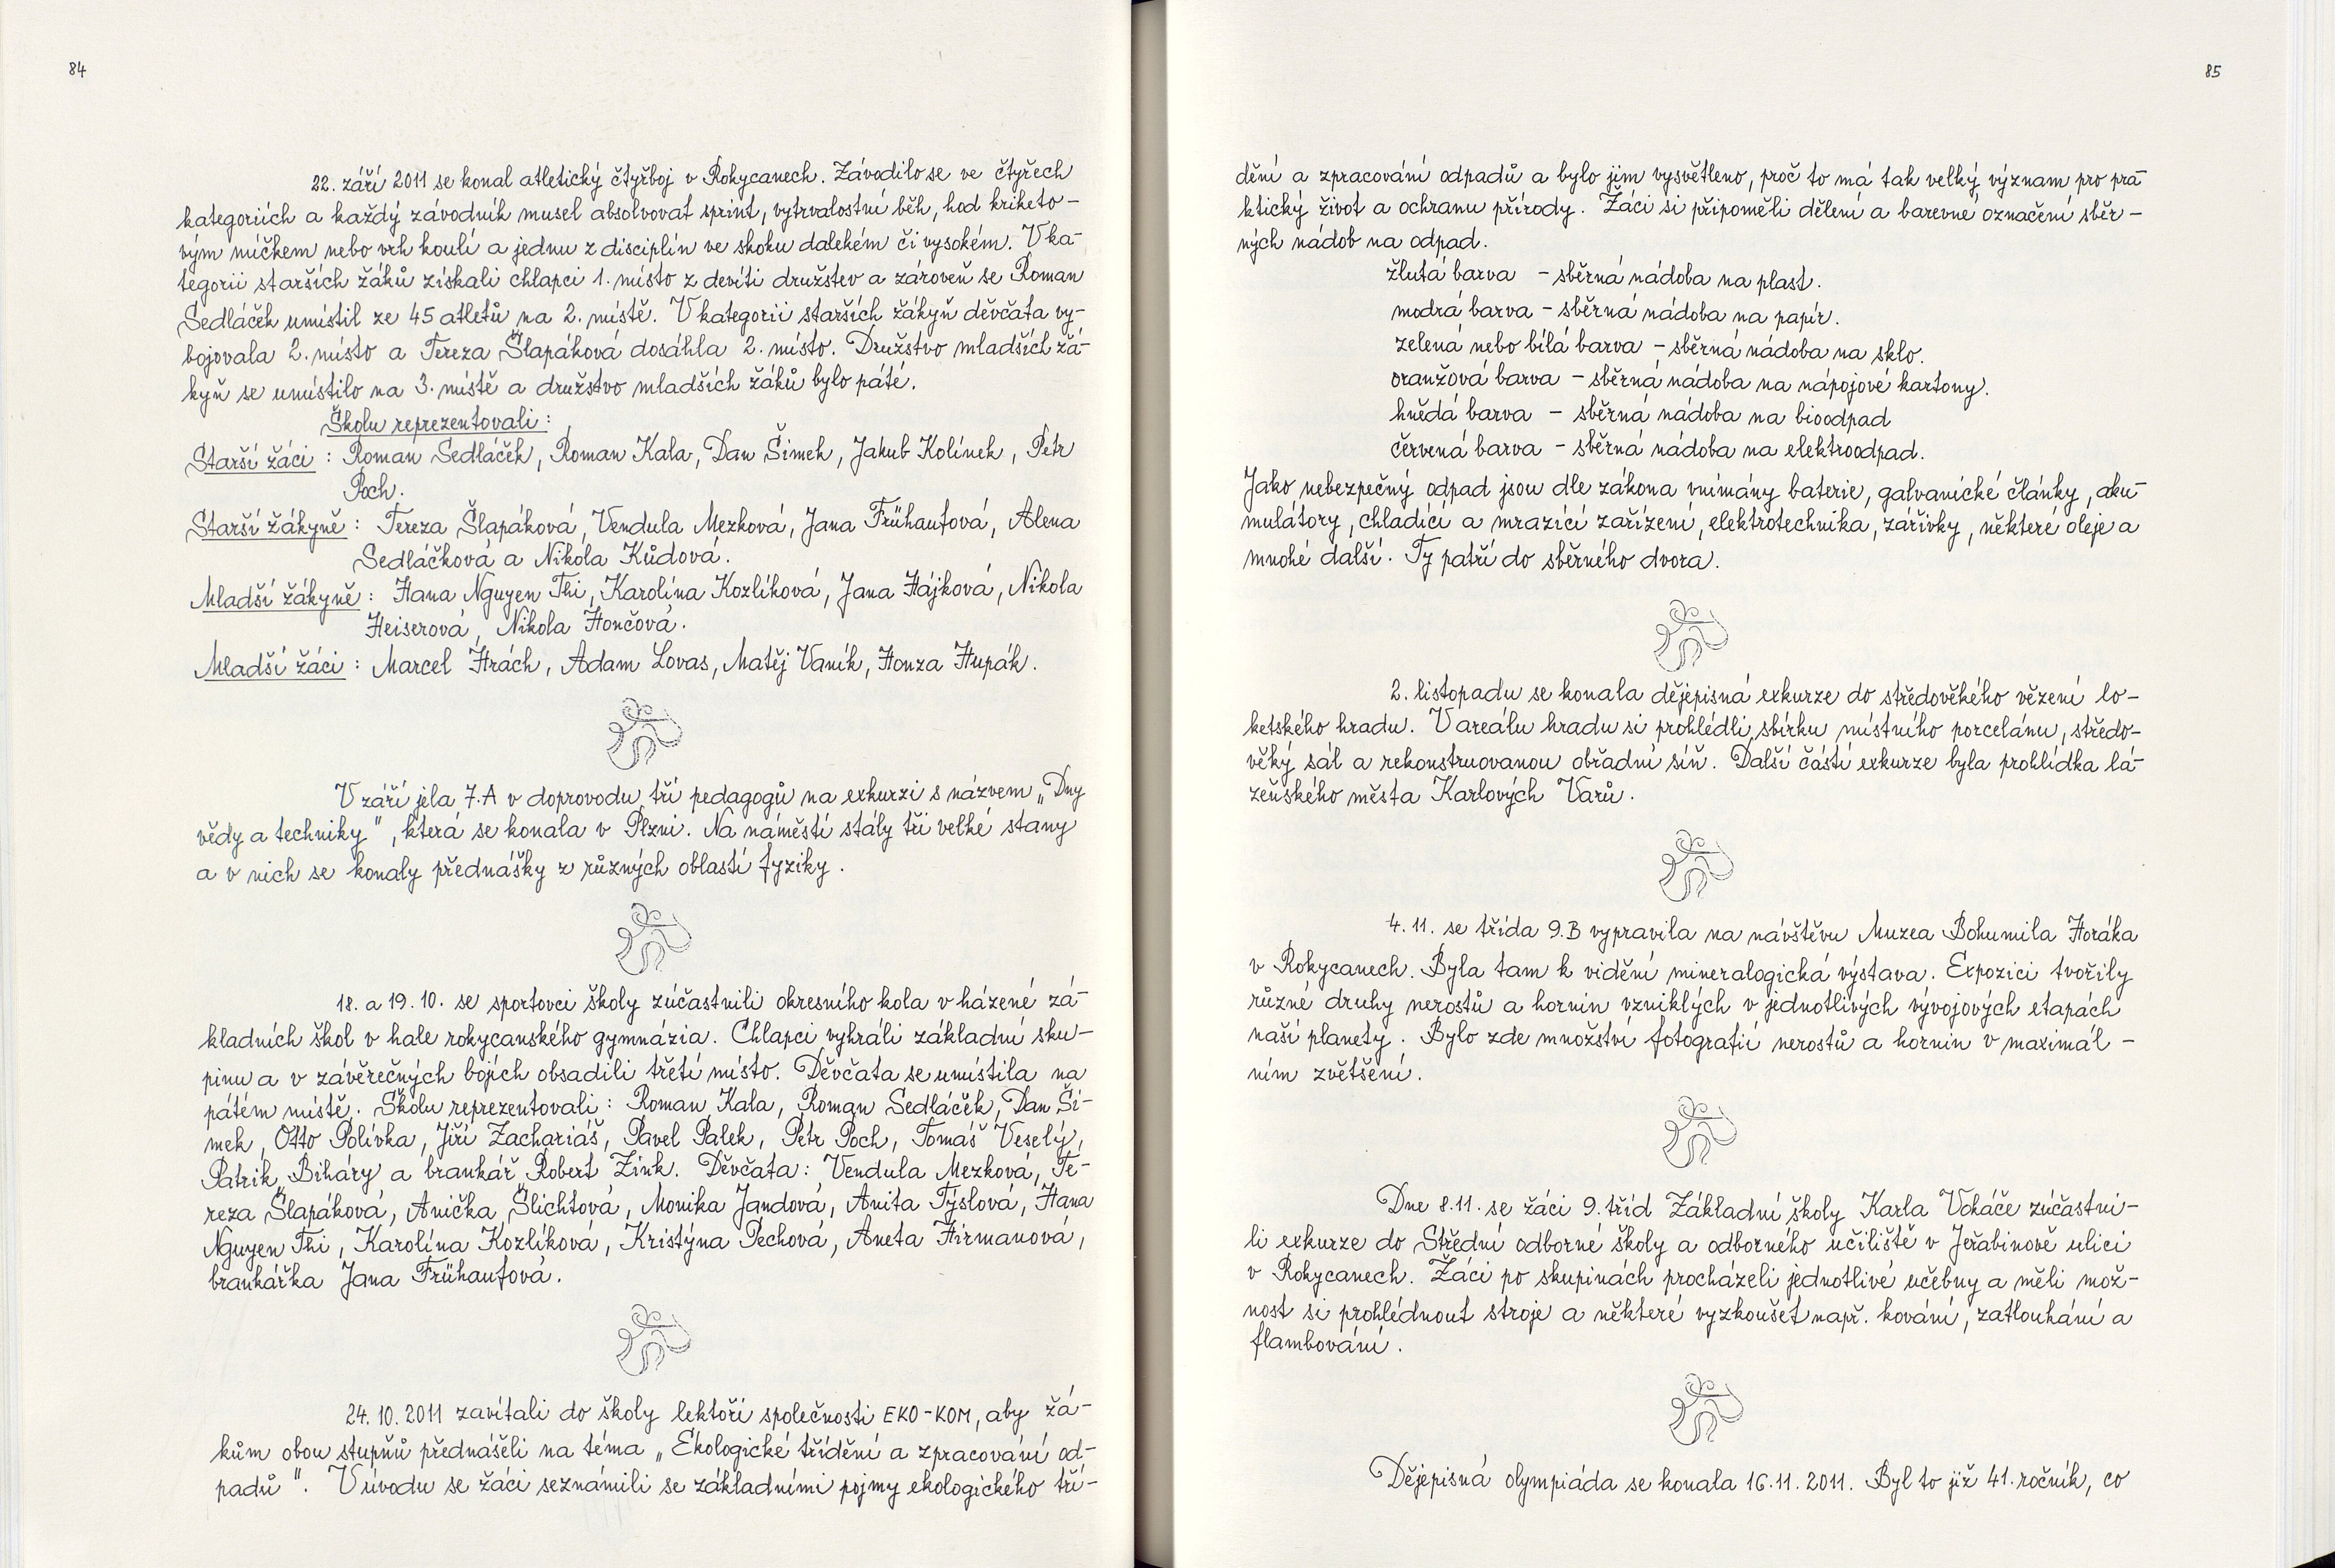 84
22. září 2011 se konal atletický čtyřboj v Rokycanech. Závodilo se ve čtyřech
kategoriích a každý závodník musel absolvovat sprint, vytrvalostní běh, hod kriketo-
vým míčkem nebo vrh koulí a jednu z disciplín ve skoku dalekém či vysokém. V ka-
tegorii starších žáků získali chlapci 1. místo z devíti družstev a zároveň se Roman
Sedláček umístil ze 45 atletů na 2. místě. V kategorii starších žákyň děvčata vy-
bojovala 2. místo a Tereza Šlapáková dosáhla 2. místo. Družstvo mladších žá-
kyň se umístilo na 3. místě a družstvo mladších žáků bylo páté.
Školu reprezentovali:
Starší žáci : Roman Sedláček, Roman Kala, Dan Šimek, Jakub Kolínek, Petr
Poch.
Starší žákyně : Tereza Šlapáková, Vendula Mezková, Jana Frühaufová, Alena
Sedláčková a Nikola Kůdová.
Mladší žákyně : Hana Nguyen Thi, Karolína Kozlíková, Jana Hájková, Nikola
Heiserová, Nikola Hončová.
Mladší žáci : Marcel Hrách, Adam Lovas, Matěj Vaník, Honza Hupák.
V září jela 7.A v doprovodu tří pedagogů na exkurzi s názvem „Dny
vědy a techniky", která se konala v Plzni. Na náměstí stály tři velké stany
a v nich se konaly přednášky z různých oblastí fyziky.
18. a 19. 10. se sportovci školy zúčastnili okresního kola v házené zá-
kladních škol v hale rokycanského gymnázia. Chlapci vyhráli základní sku-
pinu a v závěrečných bojích obsadili třetí místo. Děvčata se umístila na
pátém místě. Školu reprezentovali: Roman Kala, Roman Sedláček, Dan Ši-
mek, Otto Polívka, Jiří Zachariáš, Pavel Palek, Petr Poch, Tomáš Veselý,
Patrik Biháry a brankář Robert Zink. Děvčata: Vendula Mezková, Te-
reza Šlapáková, Anička Šlichtová, Monika Jandová, Anita Týslová, Hana
Nguyen Thi, Karolína Kozlíková, Kristýna Pechová, Aneta Hirmanová,
brankářka Jana Frühaufová.
24. 10. 2011 zavítali do školy lektoři společnosti EKO-KOM, aby žá-
kům obou stupňů přednášeli na téma „Ekologické třídění a zpracování od-
padů". V úvodu se žáci seznámili se základními pojmy ekologického tří-
85
dění a zpracování odpadů a bylo jim vysvětleno, proč to má tak velký význam pro pra-
ktický život a ochranu přírody. Žáci si připoměli dělení a barevné označení sběr-
ných nádob na odpad.
žlutá barva - sběrná nádoba na plast.
modrá barva - sběrná nádoba na papír.
zelená nebo bílá barva - sběrná nádoba na sklo.
oranžová barva - sběrná nádoba na nápojové kartony.
hnědá barva - sběrná nádoba na bioodpad
červená barva - sběrná nádoba na elektroodpad.
Jako nebezpečný odpad jsou dle zákona vnímány baterie, galvanické články, aku-
mulátory, chladící a mrazící zařízení, elektrotechnika, zářivky, některé oleje a
mnohé další. Ty patří do sběrného dvora.
2. listopadu se konala dějepisná exkurze do středověkého vězení lo-
ketského hradu. V areálu hradu si prohlédli sbírku místního porcelánu, středo-
věký sál a rekonstruovanou obřadní síň. Další částí exkurze byla prohlídka lá-
zeňského města Karlových Varů.
4. 11. se třída 9.B vypravila na návštěvu Muzea Bohumila Horáka
v Rokycanech. Byla tam k vidění mineralogická výstava. Expozici tvořily
různé druhy nerostů a hornin vzniklých v jednotlivých vývojových etapách
naší planety. Bylo zde množství fotografií nerostů a hornin v maximál-
ním zvětšení.
Dne 8.11. se žáci 9. tříd Základní školy Karla Vokáče zúčastni-
li exkurze do Střední odborné školy a odborného učiliště v Jeřabinově ulici
v Rokycanech. Žáci po skupinách procházeli jednotlivé učebny a měli mož-
nost si prohlédnout stroje a některé vyzkoušet např. kování, zatloukání a
flambování.
Dějepisná olympiáda se konala 16.11. 2011. Byl to již 41. ročník, co